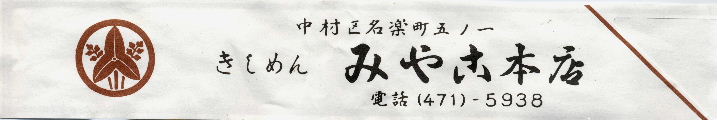 中村区名楽町五ノ一
きしめん みやこ本店
電話(471)-5938